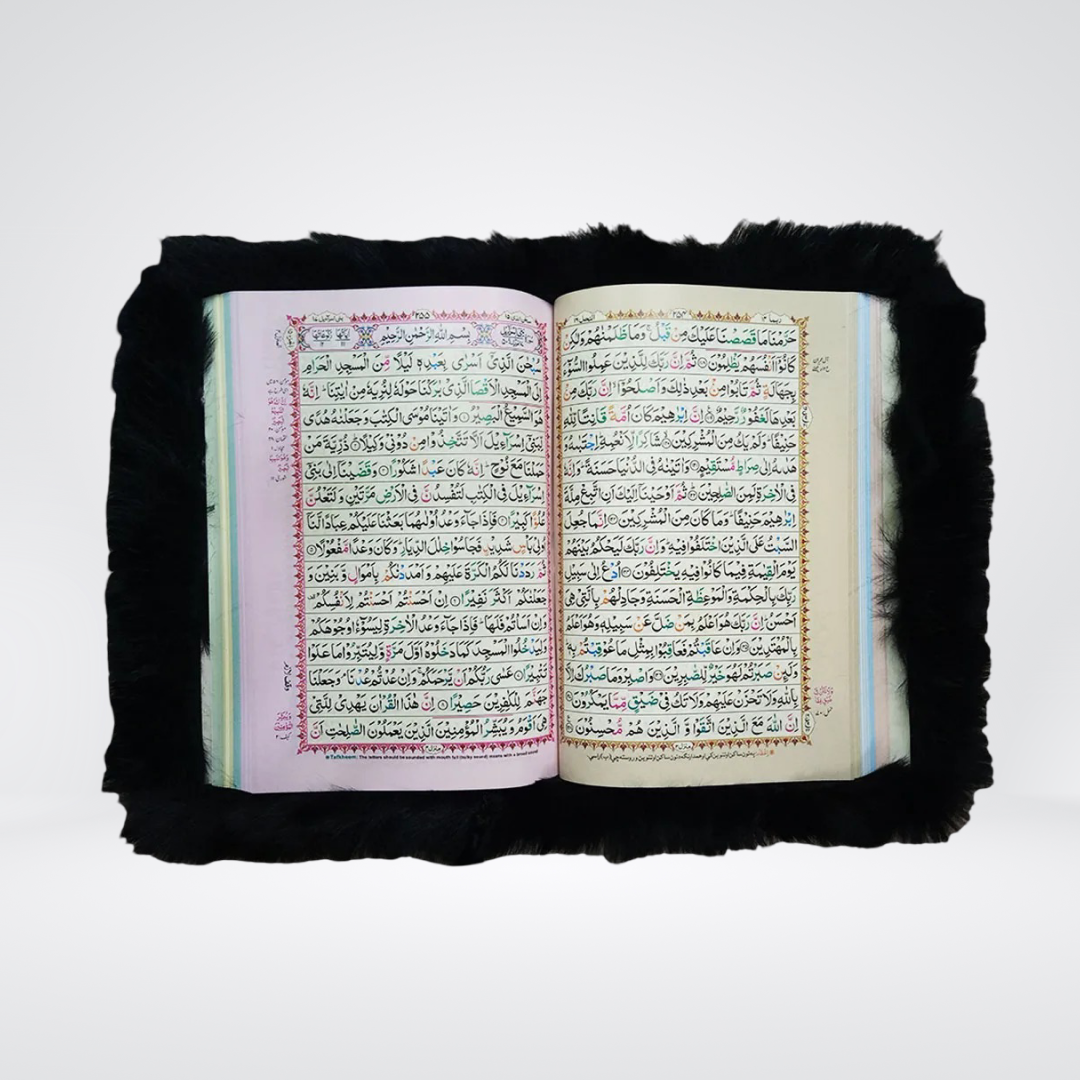 حَرَّمْنَا مَا قَصَصْنَا عَلَيْكَ مِنْ قَبْلُ ۚ وَمَا ظَلَمْنٰهُمْ وَلٰكِنْ
كَانُوْٓا اَنْفُسَهُمْ يَظْلِمُوْنَ ۝ ثُمَّ اِنَّ رَبَّكَ لِلَّذِيْنَ عَمِلُوا السُّوْٓءَ
بِجَهَالَةٍ ثُمَّ تَابُوْا مِنْۢ بَعْدِ ذٰلِكَ وَاَصْلَحُوْٓا ۙ اِنَّ رَبَّكَ مِنْۢ
بَعْدِهَا لَغَفُوْرٌ رَّحِيْمٌ ۝ اِنَّ اِبْرٰهِيْمَ كَانَ اُمَّةً قَانِتًا لِّلّٰهِ
حَنِيْفًا ؕ وَلَمْ يَكُ مِنَ الْمُشْرِكِيْنَ ۝ شَاكِرًا لِّاَنْعُمِهٖ ؕ اِجْتَبٰىهُ وَ
هَدٰىهُ اِلٰى صِرَاطٍ مُّسْتَقِيْمٍ ۝ وَاٰتَيْنٰهُ فِى الدُّنْيَا حَسَنَةً ؕ وَاِنَّهٗ
فِى الْاٰخِرَةِ لَمِنَ الصّٰلِحِيْنَ ۝ ثُمَّ اَوْحَيْنَآ اِلَيْكَ اَنِ اتَّبِعْ مِلَّةَ
اِبْرٰهِيْمَ حَنِيْفًا ؕ وَمَا كَانَ مِنَ الْمُشْرِكِيْنَ ۝ اِنَّمَا جُعِلَ
السَّبْتُ عَلَى الَّذِيْنَ اخْتَلَفُوْا فِيْهِ ؕ وَاِنَّ رَبَّكَ لَيَحْكُمُ بَيْنَهُمْ
يَوْمَ الْقِيٰمَةِ فِيْمَا كَانُوْا فِيْهِ يَخْتَلِفُوْنَ ۝ اُدْعُ اِلٰى سَبِيْلِ
رَبِّكَ بِالْحِكْمَةِ وَالْمَوْعِظَةِ الْحَسَنَةِ وَجَادِلْهُمْ بِالَّتِىْ هِىَ
اَحْسَنُ ؕ اِنَّ رَبَّكَ هُوَ اَعْلَمُ بِمَنْ ضَلَّ عَنْ سَبِيْلِهٖ وَهُوَ اَعْلَمُ
بِالْمُهْتَدِيْنَ ۝ وَاِنْ عَاقَبْتُمْ فَعَاقِبُوْا بِمِثْلِ مَا عُوْقِبْتُمْ بِهٖ ؕ
وَلَئِنْ صَبَرْتُمْ لَهُوَ خَيْرٌ لِّلصّٰبِرِيْنَ ۝ وَاصْبِرْ وَمَا صَبْرُكَ اِلَّا
بِاللّٰهِ وَلَا تَحْزَنْ عَلَيْهِمْ وَلَا تَكُ فِىْ ضَيْقٍ مِّمَّا يَمْكُرُوْنَ ۝
اِنَّ اللّٰهَ مَعَ الَّذِيْنَ اتَّقَوْا وَّ الَّذِيْنَ هُمْ مُّحْسِنُوْنَ ۝
۳۵۵
بِسْمِ اللّٰهِ الرَّحْمٰنِ الرَّحِيْمِ
سُبْحٰنَ الَّذِىْٓ اَسْرٰى بِعَبْدِهٖ لَيْلًا مِّنَ الْمَسْجِدِ الْحَرَامِ
اِلَى الْمَسْجِدِ الْاَقْصَا الَّذِىْ بٰرَكْنَا حَوْلَهٗ لِنُرِيَهٗ مِنْ اٰيٰتِنَا ؕ اِنَّهٗ
هُوَ السَّمِيْعُ الْبَصِيْرُ ۝ وَاٰتَيْنَا مُوْسَى الْكِتٰبَ وَجَعَلْنٰهُ هُدًى
لِّبَنِىْٓ اِسْرَآءِيْلَ اَلَّا تَتَّخِذُوْا مِنْ دُوْنِىْ وَكِيْلًا ۝ ذُرِّيَّةَ مَنْ
حَمَلْنَا مَعَ نُوْحٍ ؕ اِنَّهٗ كَانَ عَبْدًا شَكُوْرًا ۝ وَقَضَيْنَآ اِلٰى بَنِىْٓ
اِسْرَآءِيْلَ فِى الْكِتٰبِ لَتُفْسِدُنَّ فِى الْاَرْضِ مَرَّتَيْنِ وَلَتَعْلُنَّ
عُلُوًّا كَبِيْرًا ۝ فَاِذَا جَآءَ وَعْدُ اُوْلٰىهُمَا بَعَثْنَا عَلَيْكُمْ عِبَادًا لَّنَآ
اُولِىْ بَاْسٍ شَدِيْدٍ فَجَاسُوْا خِلٰلَ الدِّيَارِ ؕ وَكَانَ وَعْدًا مَّفْعُوْلًا ۝
ثُمَّ رَدَدْنَا لَكُمُ الْكَرَّةَ عَلَيْهِمْ وَاَمْدَدْنٰكُمْ بِاَمْوَالٍ وَّبَنِيْنَ وَ
جَعَلْنٰكُمْ اَكْثَرَ نَفِيْرًا ۝ اِنْ اَحْسَنْتُمْ اَحْسَنْتُمْ لِاَنْفُسِكُمْ
وَاِنْ اَسَاْتُمْ فَلَهَا ؕ فَاِذَا جَآءَ وَعْدُ الْاٰخِرَةِ لِيَسُوْٓءٗا وُجُوْهَكُمْ
وَلِيَدْخُلُوا الْمَسْجِدَ كَمَا دَخَلُوْهُ اَوَّلَ مَرَّةٍ وَّلِيُتَبِّرُوْا مَا عَلَوْا
تَتْبِيْرًا ۝ عَسٰى رَبُّكُمْ اَنْ يَّرْحَمَكُمْ ۚ وَاِنْ عُدْتُّمْ عُدْنَا ۘ وَجَعَلْنَا
جَهَنَّمَ لِلْكٰفِرِيْنَ حَصِيْرًا ۝ اِنَّ هٰذَا الْقُرْاٰنَ يَهْدِىْ لِلَّتِىْ
هِىَ اَقْوَمُ وَيُبَشِّرُ الْمُؤْمِنِيْنَ الَّذِيْنَ يَعْمَلُوْنَ الصّٰلِحٰتِ اَنَّ
Tafkheem: The letters should be sounded with mouth full (bulky sound) means with a broad sound